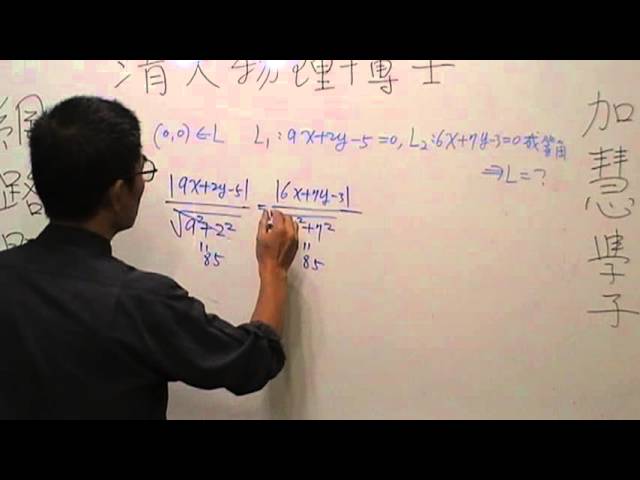 清大物理博士
加慧學子
網路
(0,0)∈L L₁:9x+2y-5=0, L₂:6x+7y-3=0 或等角
⇒L=?
|9x+2y-5| / √9²+2² = |6x+7y-3| / ²+7²
" "
85 85